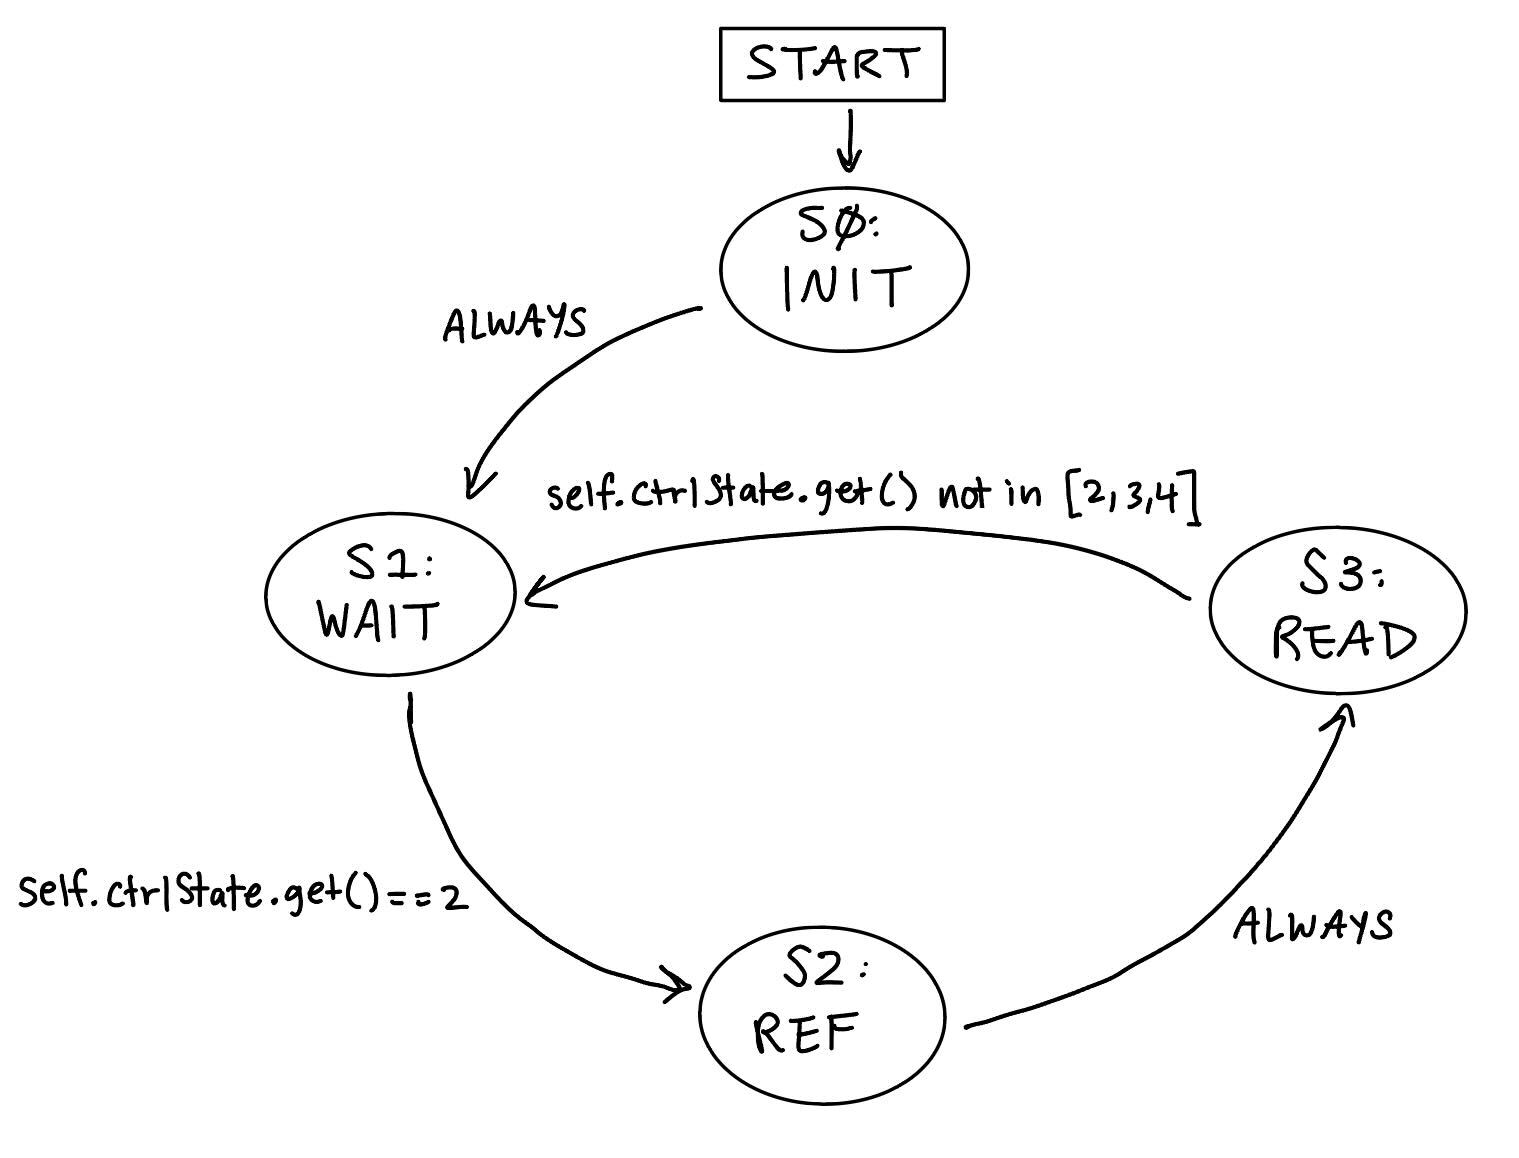 START
SØ:
INIT
ALWAYS
self.ctrlState.get() not in [2,3,4]
S1:
WAIT
S3:
READ
self.ctrlState.get()==2
ALWAYS
S2:
REF